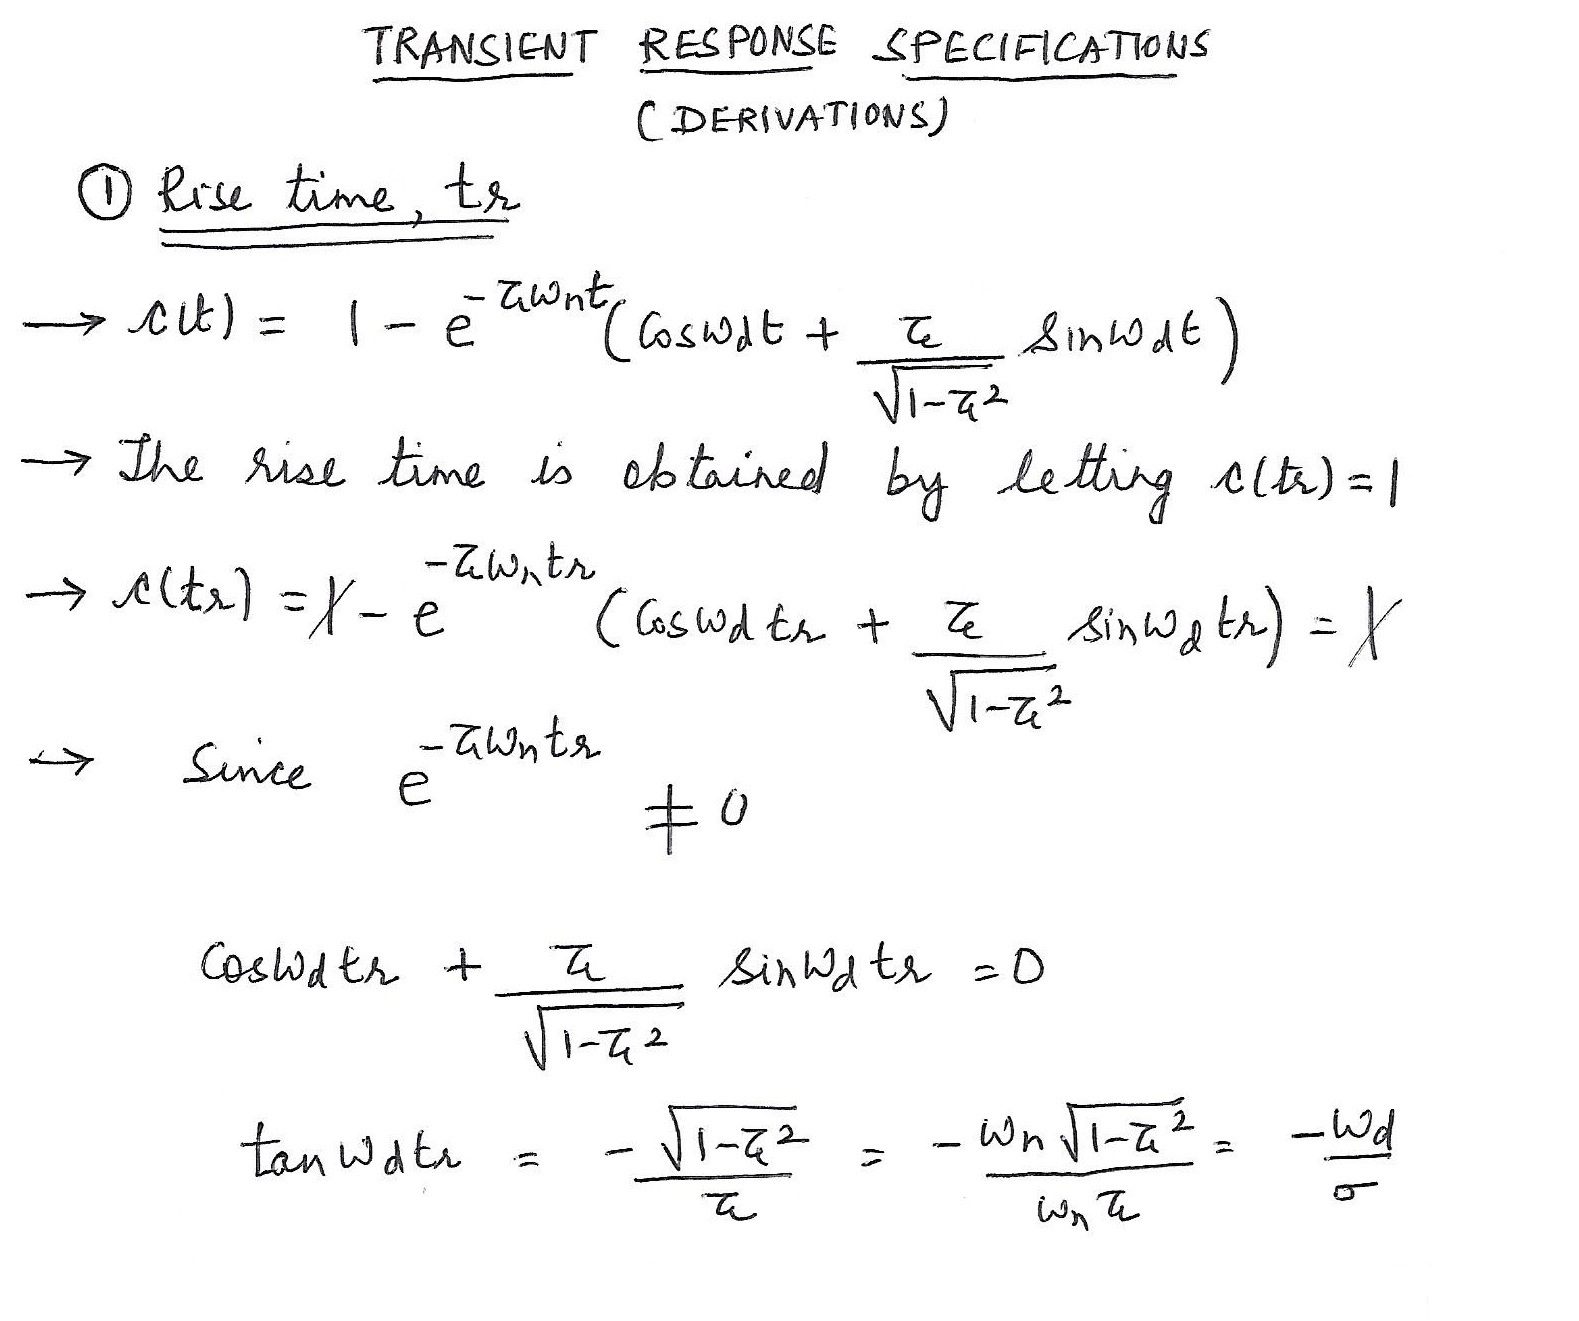 TRANSIENT RESPONSE SPECIFICATIONS
(DERIVATIONS)
① Rise time, tr
→ c(t) = 1 - e^{-ζωnt} (Cosωdt + ζ/√(1-ζ²) Sinωdt)
→ The rise time is obtained by letting c(tr) = 1
→ c(tr) = 1 - e^{-ζωntr} (Cosωdtr + ζ/√(1-ζ²) sinωdtr) = 1
→ Since e^{-ζωntr} ≠ 0
Cosωdtr + ζ/√(1-ζ²) sinωdtr = 0
tanωdtr = - √(1-ζ²)/ζ = - ωn√(1-ζ²)/ωnζ = -ωd/σ